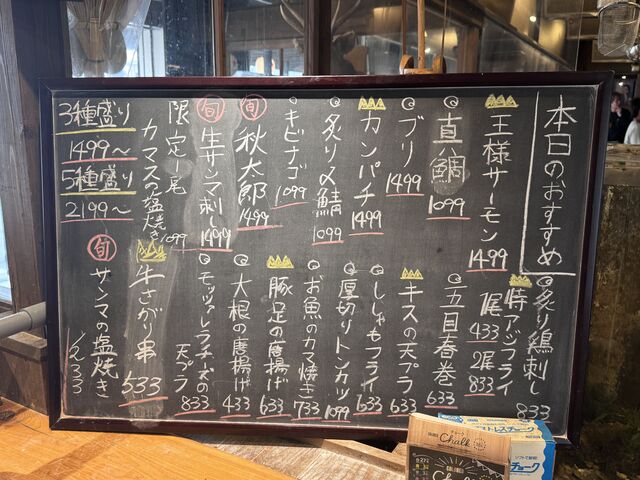 本日のおすすめ
王様サーモン 1499
真鯛 1099
ブリ 1499
カンパチ 1499
炙り〆鯖 1099
キビナゴ 1099
旬 秋太郎 1499
旬 生サンマ刺し 1499
限定一尾
カマスの塩焼き 1099
3種盛り
1499~
5種盛り
2199~
炙り鶏刺し 833
特アジフライ
1尾 433 2尾 833
五目春巻 633
キスの天プラ 633
ししゃもフライ 633
厚切りトンカツ 1099
お魚のカマ焼き 733
豚足の唐揚げ 633
大根の唐揚げ 433
モッツァレラチーズの天プラ 833
牛さがり串 533
旬 サンマの塩焼き 1233
Chalk
チョーク